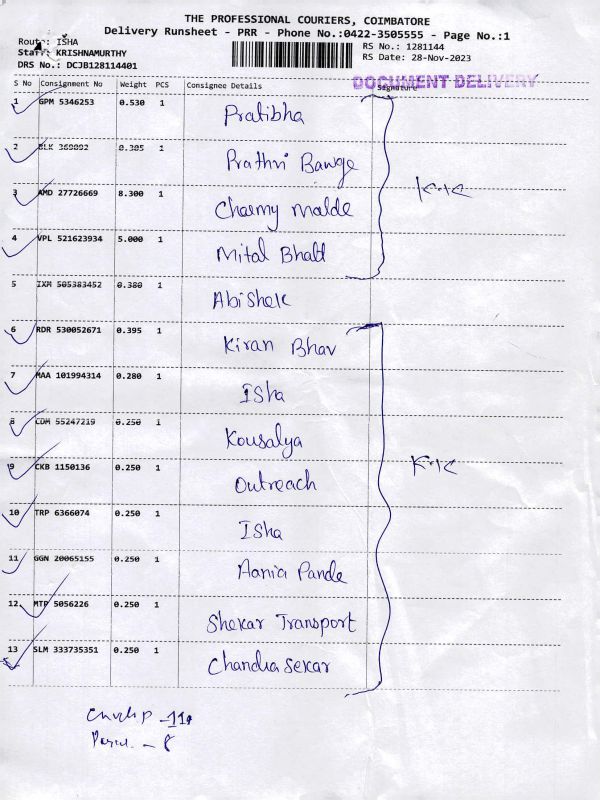 THE PROFESSIONAL COURIERS, COIMBATORE
Delivery Runsheet - PRR - Phone No.:0422-3505555 - Page No.:1
Route: ISHA
Staff: KRISHNAMURTHY
DRS No.: DCJB128114401
RS No.: 1281144
RS Date: 28-Nov-2023
DOCUMENT DELIVERY
S No Consignment No Weight PCS Consignee Details Signature
1 GPM 5346253 0.530 1 Pratibha
2 0.305 1 Prathvi Bawge
3 AMD 27726669 8.300 1 Charmy Malde
K.K
4 VPL 521623934 5.000 1 Mital Bhatt
5 IXM 505383452 0.380 1 Abishek
6 RDR 530052671 0.395 1 Kiran Bhav
7 MAA 101994314 0.280 1 Isha
8 COM 55247219 0.250 1 Kousalya
9 CKB 1150136 0.250 1 Outreach
K.K
10 TRP 6366074 0.250 1 Isha
11 GGN 20065155 0.250 1 Aania Pande
12 MTP 5056226 0.250 1 Shekar Transport
13 SLM 333735351 0.250 1 Chandrasekar